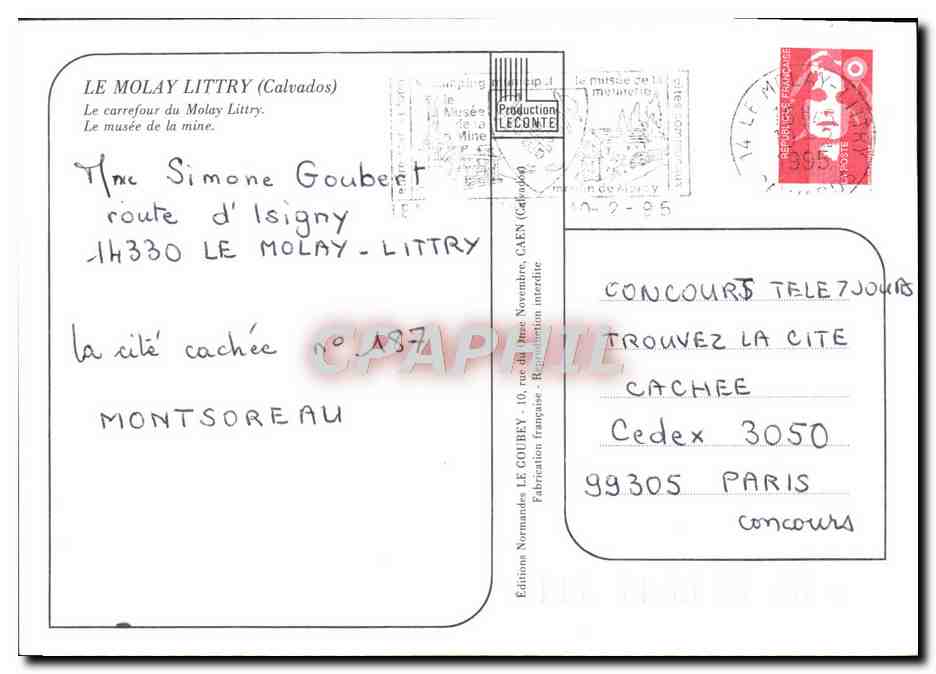 LE MOLAY LITTRY (Calvados)
Le carrefour du Molay Littry.
Le musée de la mine.
Mme Simone Goubert
route d'Isigny
14330 LE MOLAY - LITTRY
la cité cachée n° 187
MONTSOREAU
municipal
le musée de la
meunerie
le
Musée
de la
Mine
moulin de Marcy
10-2-95
Production
LECONTE
Éditions Normandes LE GOUBEY - 10, rue du Onze Novembre, CAEN (Calvados)
Fabrication française - Reproduction interdite
14 LE MOLAY-LITTRY
995
REPUBLIQUE FRANÇAISE
LA POSTE
CONCOURS TELE 7 JOURS
TROUVEZ LA CITE
CACHEE
Cedex 3050
99305 PARIS
concours
CPAPHIL